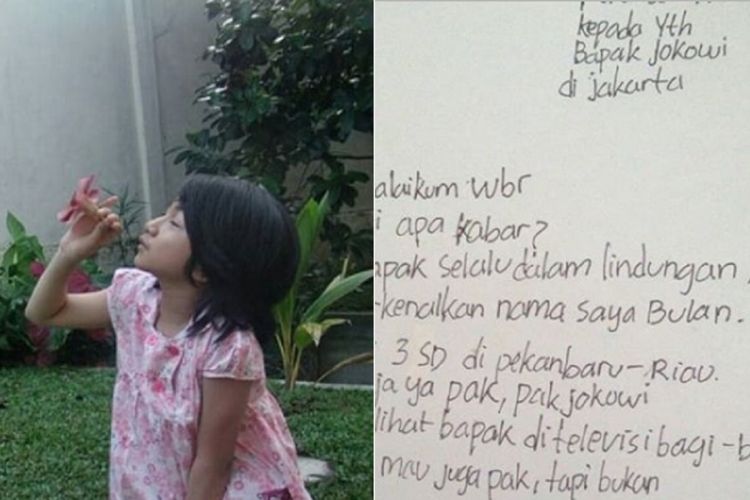 kepada Yth
Bapak Jokowi
di jakarta
alaikum wbr
i apa kabar?
pak selalu dalam lindungan
-kenalkan nama saya Bulan.
3 SD di pekanbaru-Riau.
ja ya pak, pak jokowi
lihat bapak di televisi bagi-b
mau juga pak, tapi bukan